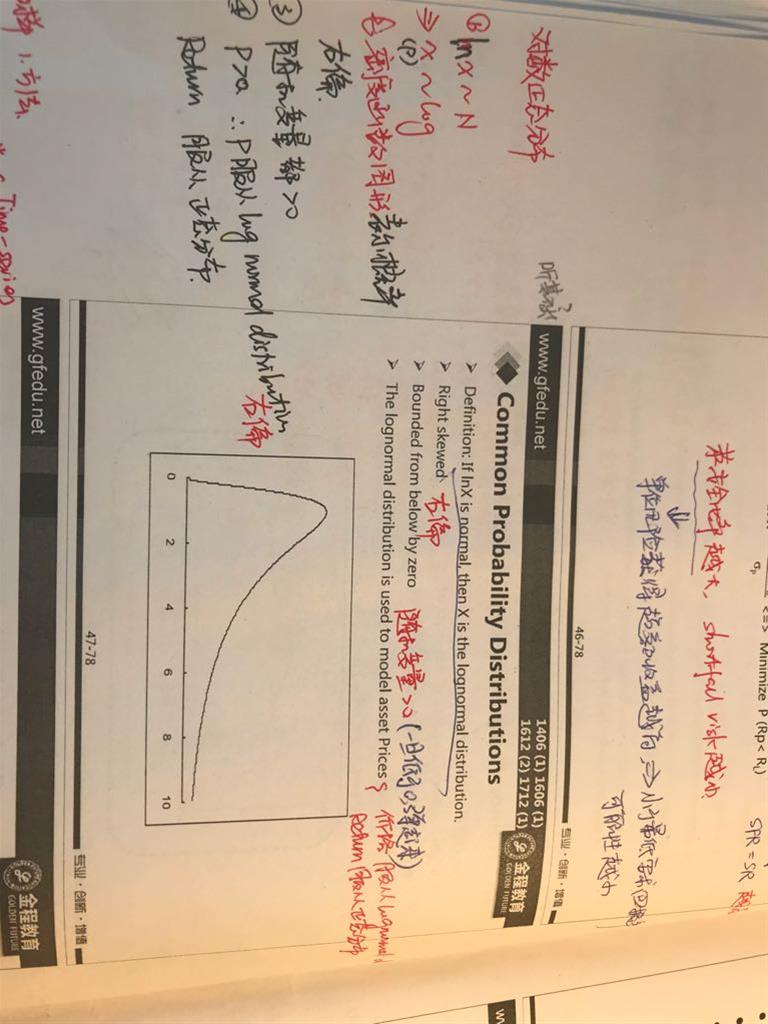 σp
<=> Minimize P (Rp< RL)
SPR = SR
求安全比率越大, shortfall risk 越小
⇓
单位风险获得超额收益越高, ⇒ 小于最低要求回报
可能性越小
46-78
专业·创新·增值
www.gfedu.net
1406 (1) 1606 (1)
1612 (2) 1712 (1)
金程教育
GOLDEN FUTURE
Common Probability Distributions
➢ Definition: If lnX is normal, then X is the lognormal distribution.
➢ Right skewed 右偏
➢ Bounded from below by zero 随机变量>0
➢ The lognormal distribution is used to model asset Prices
价格服从 lognormal
Return 服从正态分布
0 2 4 6 8 10
47-78
专业·创新·增值
www.gfedu.net
金程教育
GOLDEN FUTURE
对数正态分布
ln x ~ N
⇒ x ~ log
(P)
密度函数图形 表示概率
右偏.
③ 随机变量都>0
④ P>0 ∴ P服从 log normal distribution
右偏
Return 服从正态分布.
1. 方法
Time-series